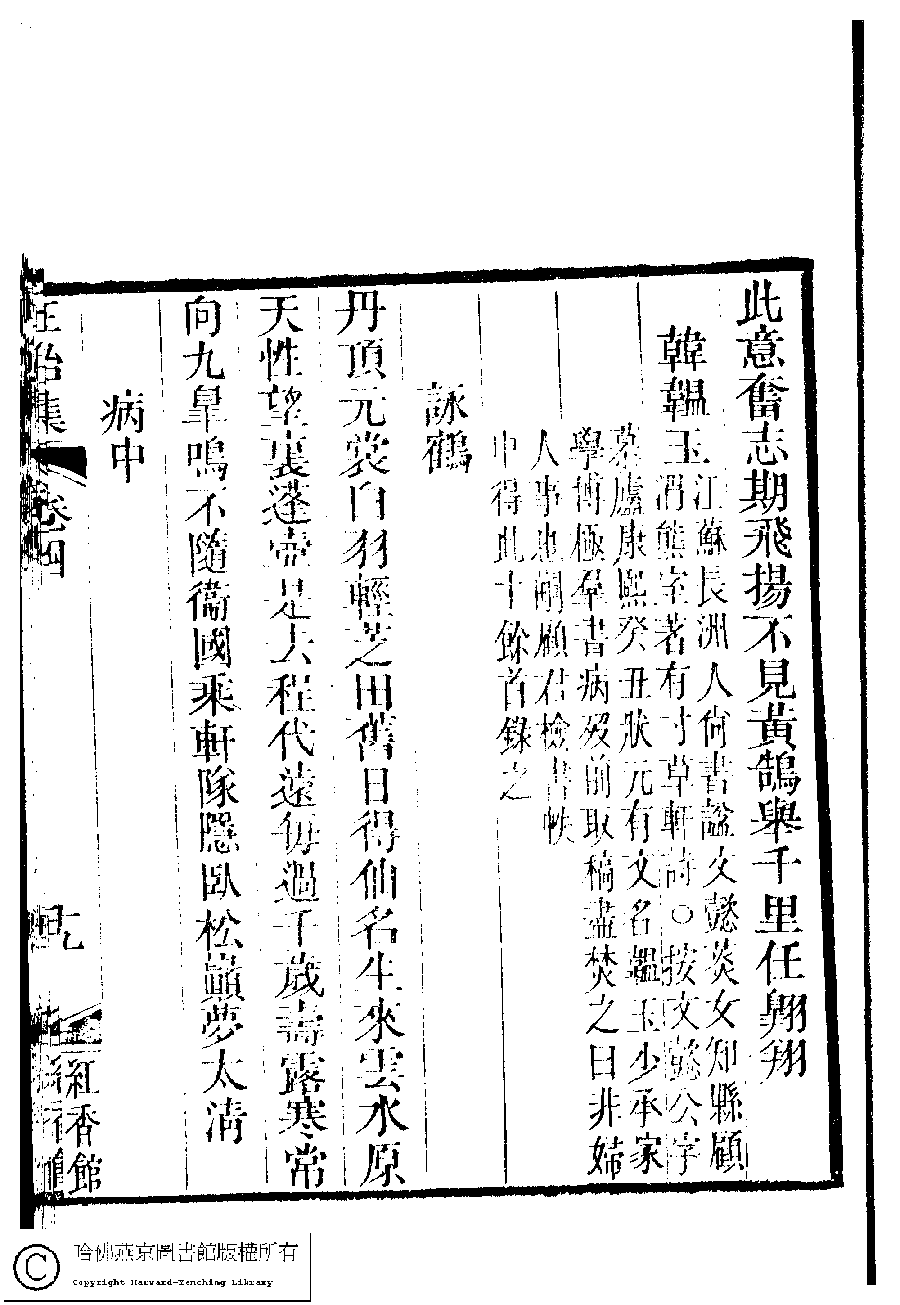 此意奮志期飛揚不見黃鵠舉千里任翺翔
韓韞玉
江蘇長洲人尙書諡文懿菼女知縣顧
渭熊室著有寸草軒詩○按文懿公字
慕廬康熙癸丑狀元有文名韞玉少承家
學博極羣書病歿前取稿盡焚之曰非婦
人事也嗣顧君檢書帙
中得此十餘首錄之
詠鶴
丹頂元裳白羽輕芝田舊日得仙名生來雲水原
天性望裏蓬壺是去程代遠每過千歲壽露寒常
向九臯鳴不隨衞國乘軒隊隱臥松巔夢太淸
病中
正始集 卷四
九
紅香館
哈佛燕京圖書館版權所有
Copyright Harvard-Yenching Library